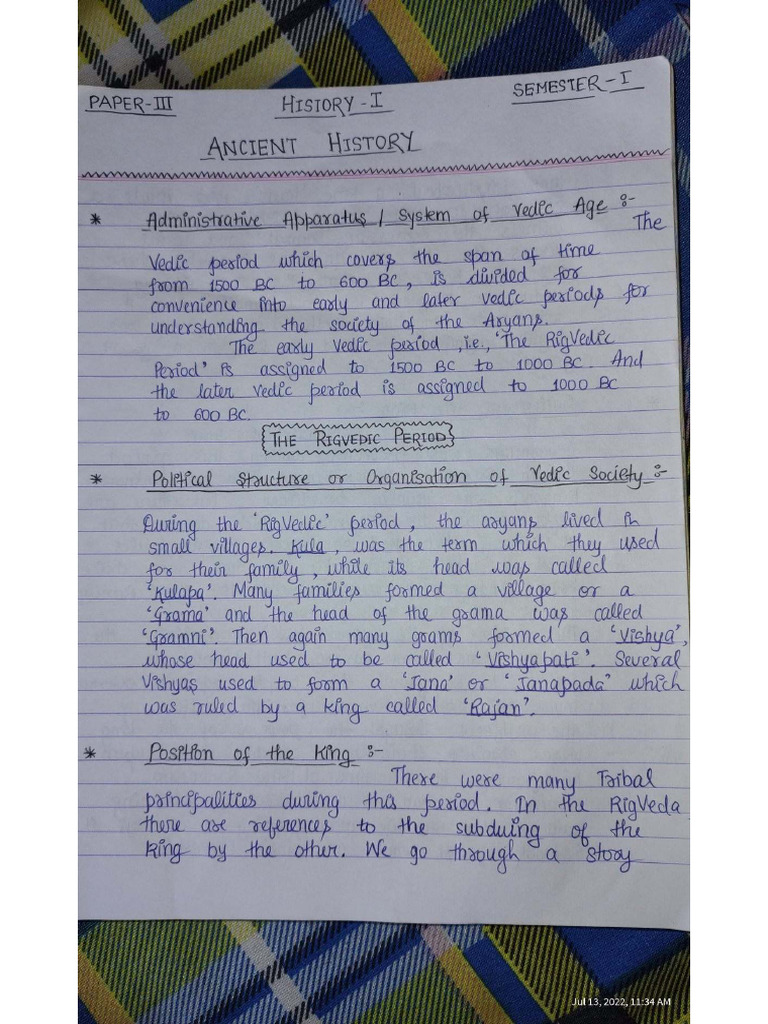 PAPER-III HISTORY-I SEMESTER-I
ANCIENT HISTORY
* Administrative Apparatus / System of Vedic Age :-
The
Vedic period which covers the span of time
from 1500 BC to 600 BC, is divided for
convenience into early and later vedic periods for
understanding the society of the Aryans.
The early vedic period, i.e., 'The RigVedic
Period' is assigned to 1500 BC to 1000 BC. And
the later vedic period is assigned to 1000 BC
to 600 BC.
THE RIGVEDIC PERIOD
* Political Structure or Organisation of Vedic Society :-
During the 'RigVedic' period, the aryans lived in
small villages. Kula, was the term which they used
for their family, while its head was called
'Kulapa'. Many families formed a village or a
'Grama' and the head of the grama was called
'Gramni'. Then again many grams formed a 'Vishya',
whose head used to be called 'Vishyapati'. Several
Vishyas used to form a 'Jana' or 'Janapada' which
was ruled by a king called 'Rajan'.
* Position of the King :-
There were many Tribal
principalities during this period. In the RigVeda
there are references to the subduing of the
king by the other. We go through a story
Jul 13, 2022, 11:34 AM